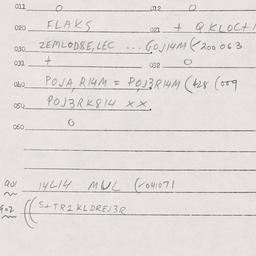 011 0 012 0
020 FLAKS 021 + QKLOCT
030 ZEMLODSE,LEC ... GOJ14M (200 063
031 + 032 0
040 POJA,R14M = POJ3R14M (428 (009
050 POJ3RK814 XX
060 0
901 14L14 MUL (041071
902 ((S+TR2KLDREJ3R